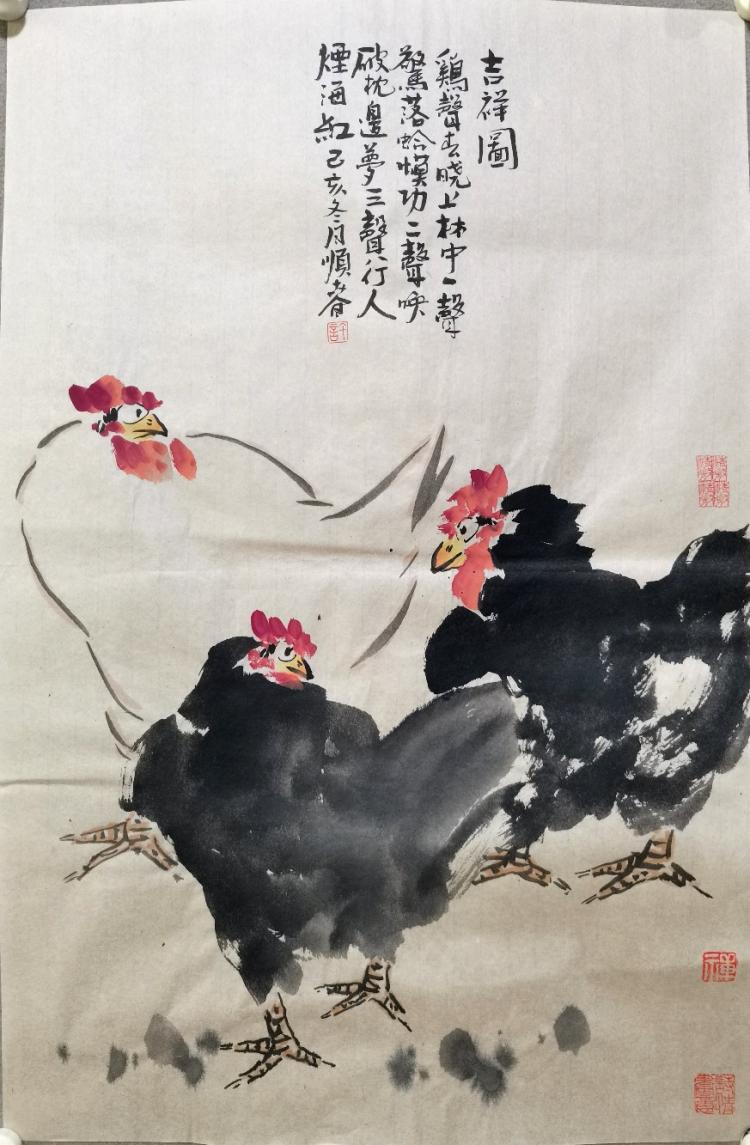 吉祥圖
鶏聲去晓上林中一聲
驚落蛤蟆功二聲唤
破枕邊夢三聲行人
煙海紅己亥冬月順春
禅